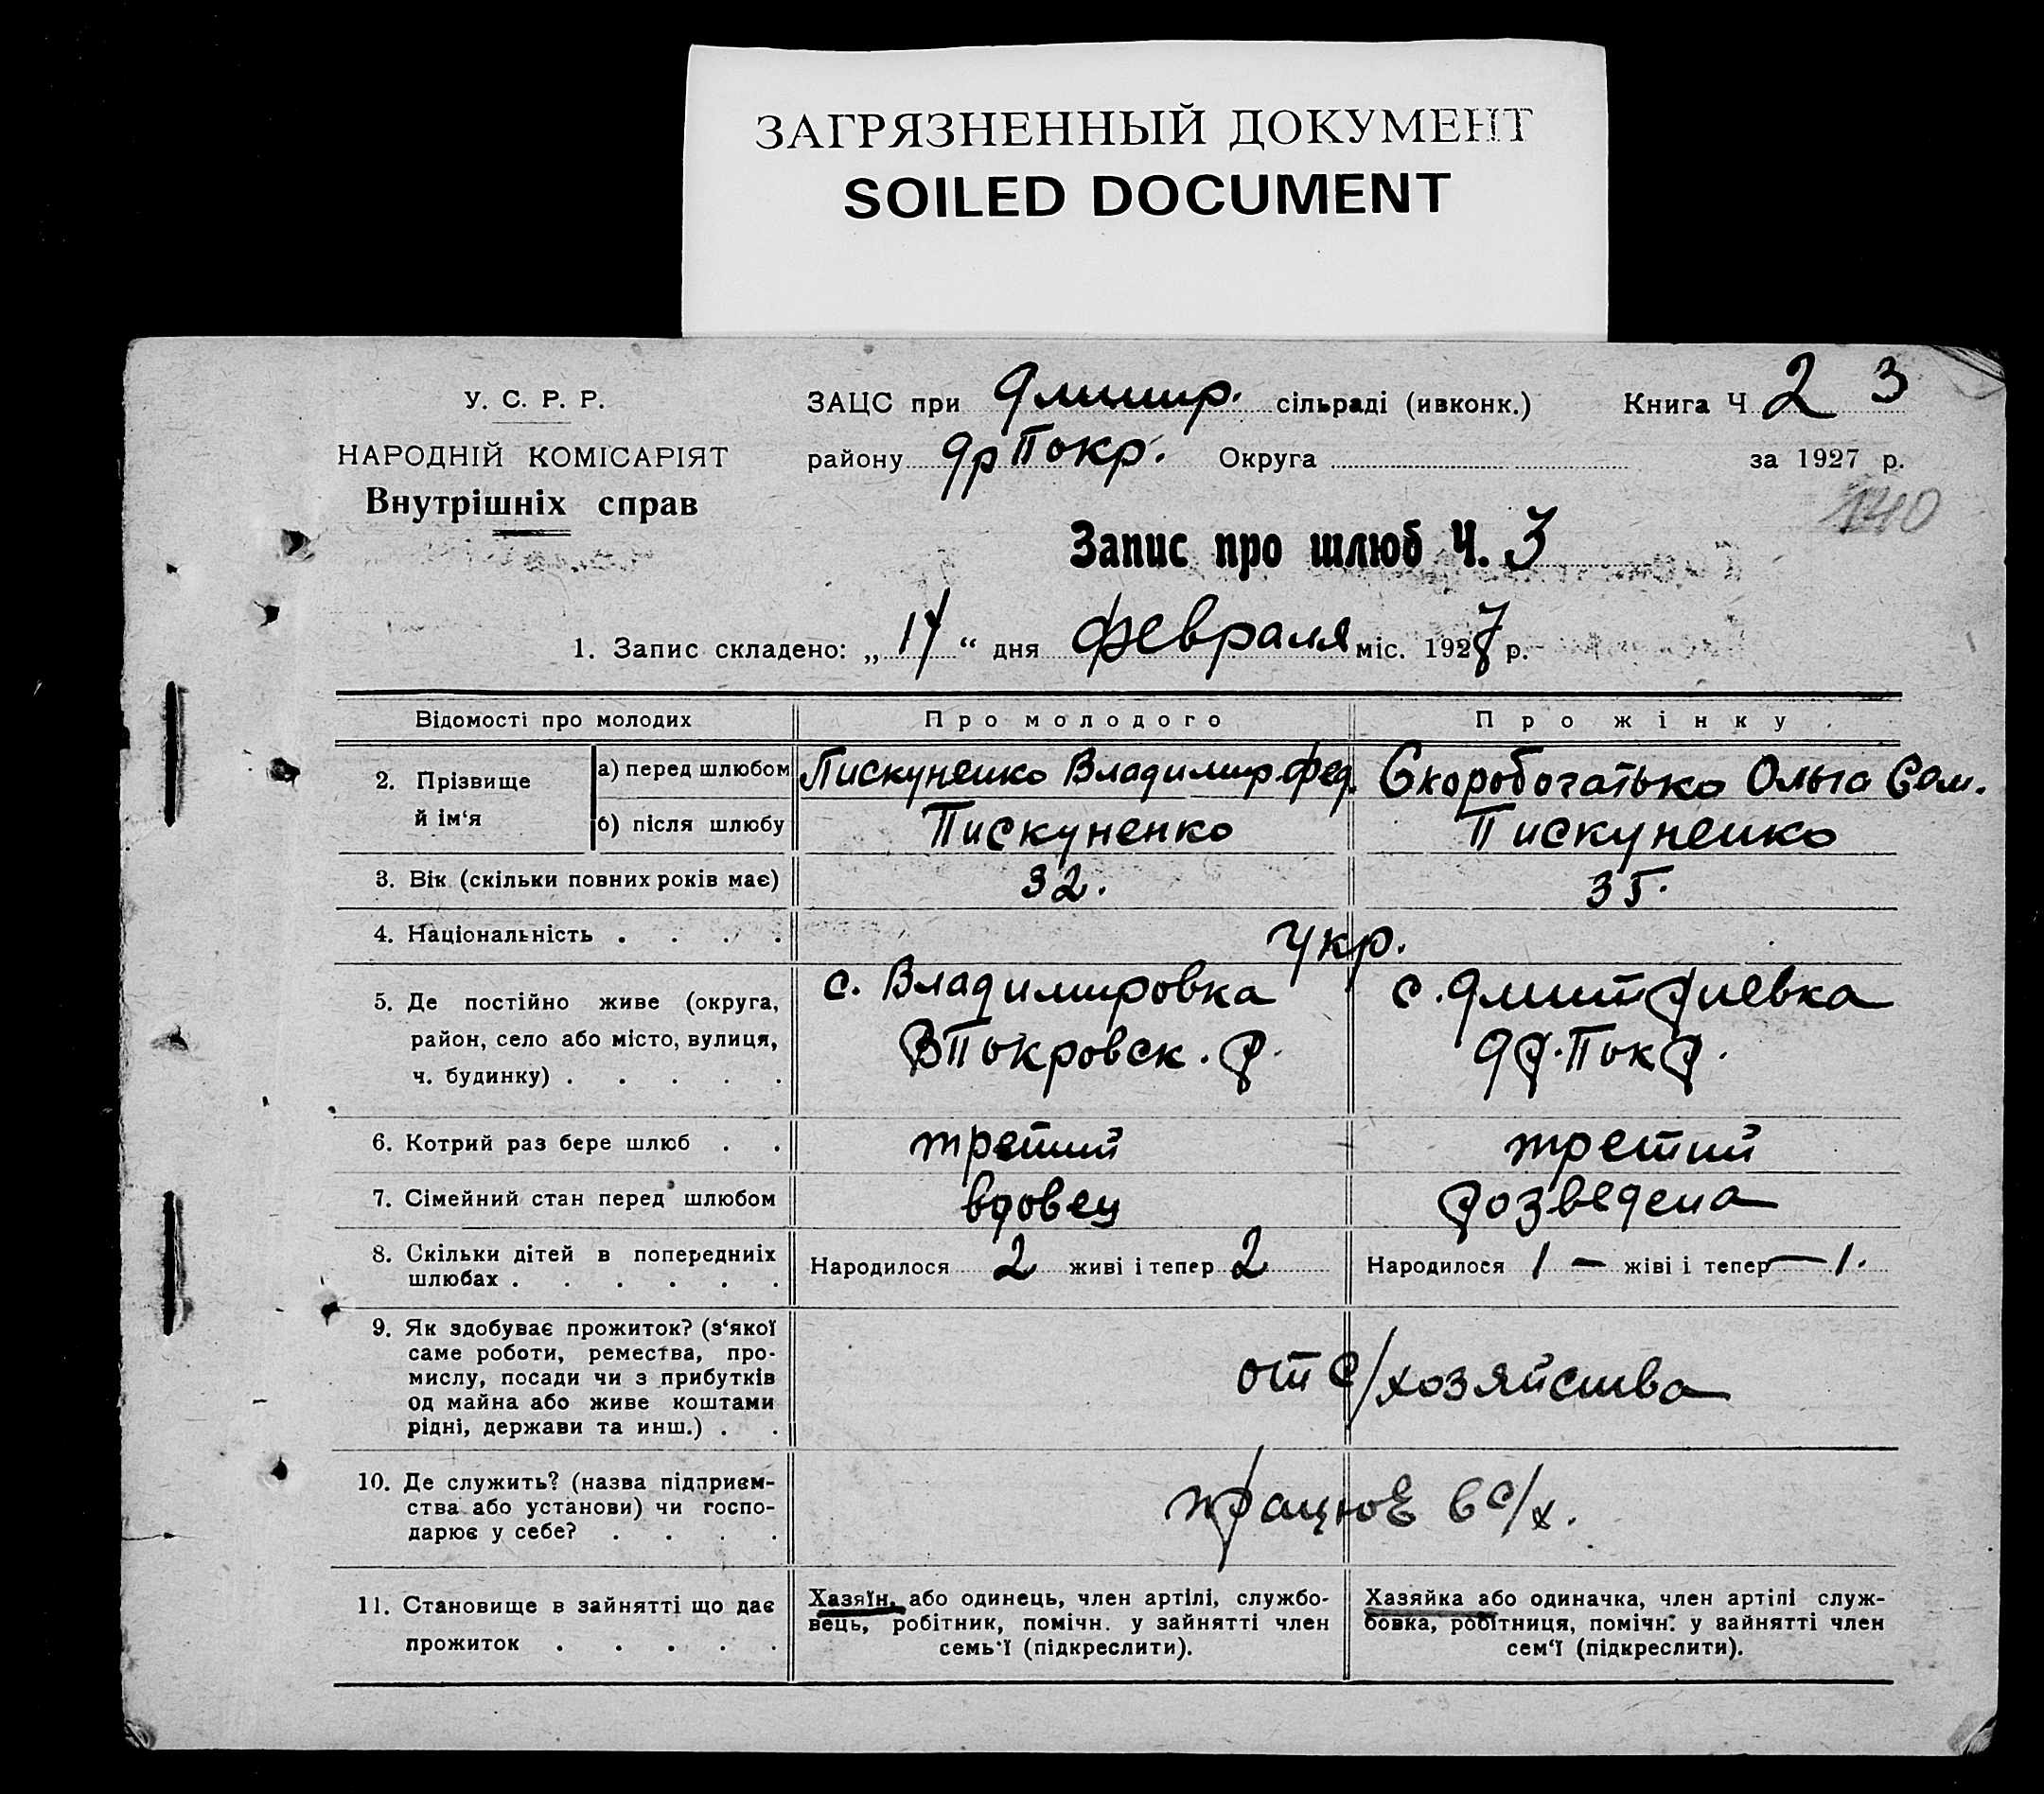 ЗАГРЯЗНЕННЫЙ ДОКУМЕНТ
SOILED DOCUMENT
У. С. Р. Р.
НАРОДНІЙ КОМІСАРІЯТ
Внутрішніх справ
ЗАЦС при Дмитр. сільраді (ивконк.) Книга Ч 2 3
району Др Покр. Округа за 1927 р.
Запис про шлюб Ч. 3
1. Запис складено: „ “ дня февраля міс. 1927 р.
Відомості про молодих Про молодого Про жінку
2. Прізвище й ім‘я
а) перед шлюбом Пискуненко Владимир Фед. Скоробогатько Ольга Сам.
б) після шлюбу Пискуненко Пискуненко
3. Вік (скільки повних років має) 32. 35.
4. Національність . . . . укр.
5. Де постійно живе (округа, с. Владимировка с. Дмитриевка
район, село або місто, вулиця, ВПокровск. р. Др. Покр.
ч. будинку) . . . . .
6. Котрий раз бере шлюб . . третий третий
7. Сімейний стан перед шлюбом вдовец розведена
8. Скільки дітей в попередниіх Народилося 2 живі і тепер 2 Народилося 1 — жіві і тепер — 1.
шлюбах . . . . . .
9. Як здобуває прожиток? (з‘якої
саме роботи, ремества, про-
мислу, посади чи з прибутків от с/хозяйства
од майна або живе коштами
рідні, держави та инш.) . .
10. Де служить? (назва підприєм-
ства або установи) чи госпо- працює в с/х.
дарює у себе? . . . .
11. Становище в зайнятті що дає
прожиток . . . . .
Хазяїн, або одинець, член артілі, службо-
вець, робітник, помічн. у зайнятті член
семь‘ї (підкреслити).
Хазяйка або одиначка, член артілі служ-
бовка, робітниця, помічн. у зайнятті член
сем‘ї (підкреслити).